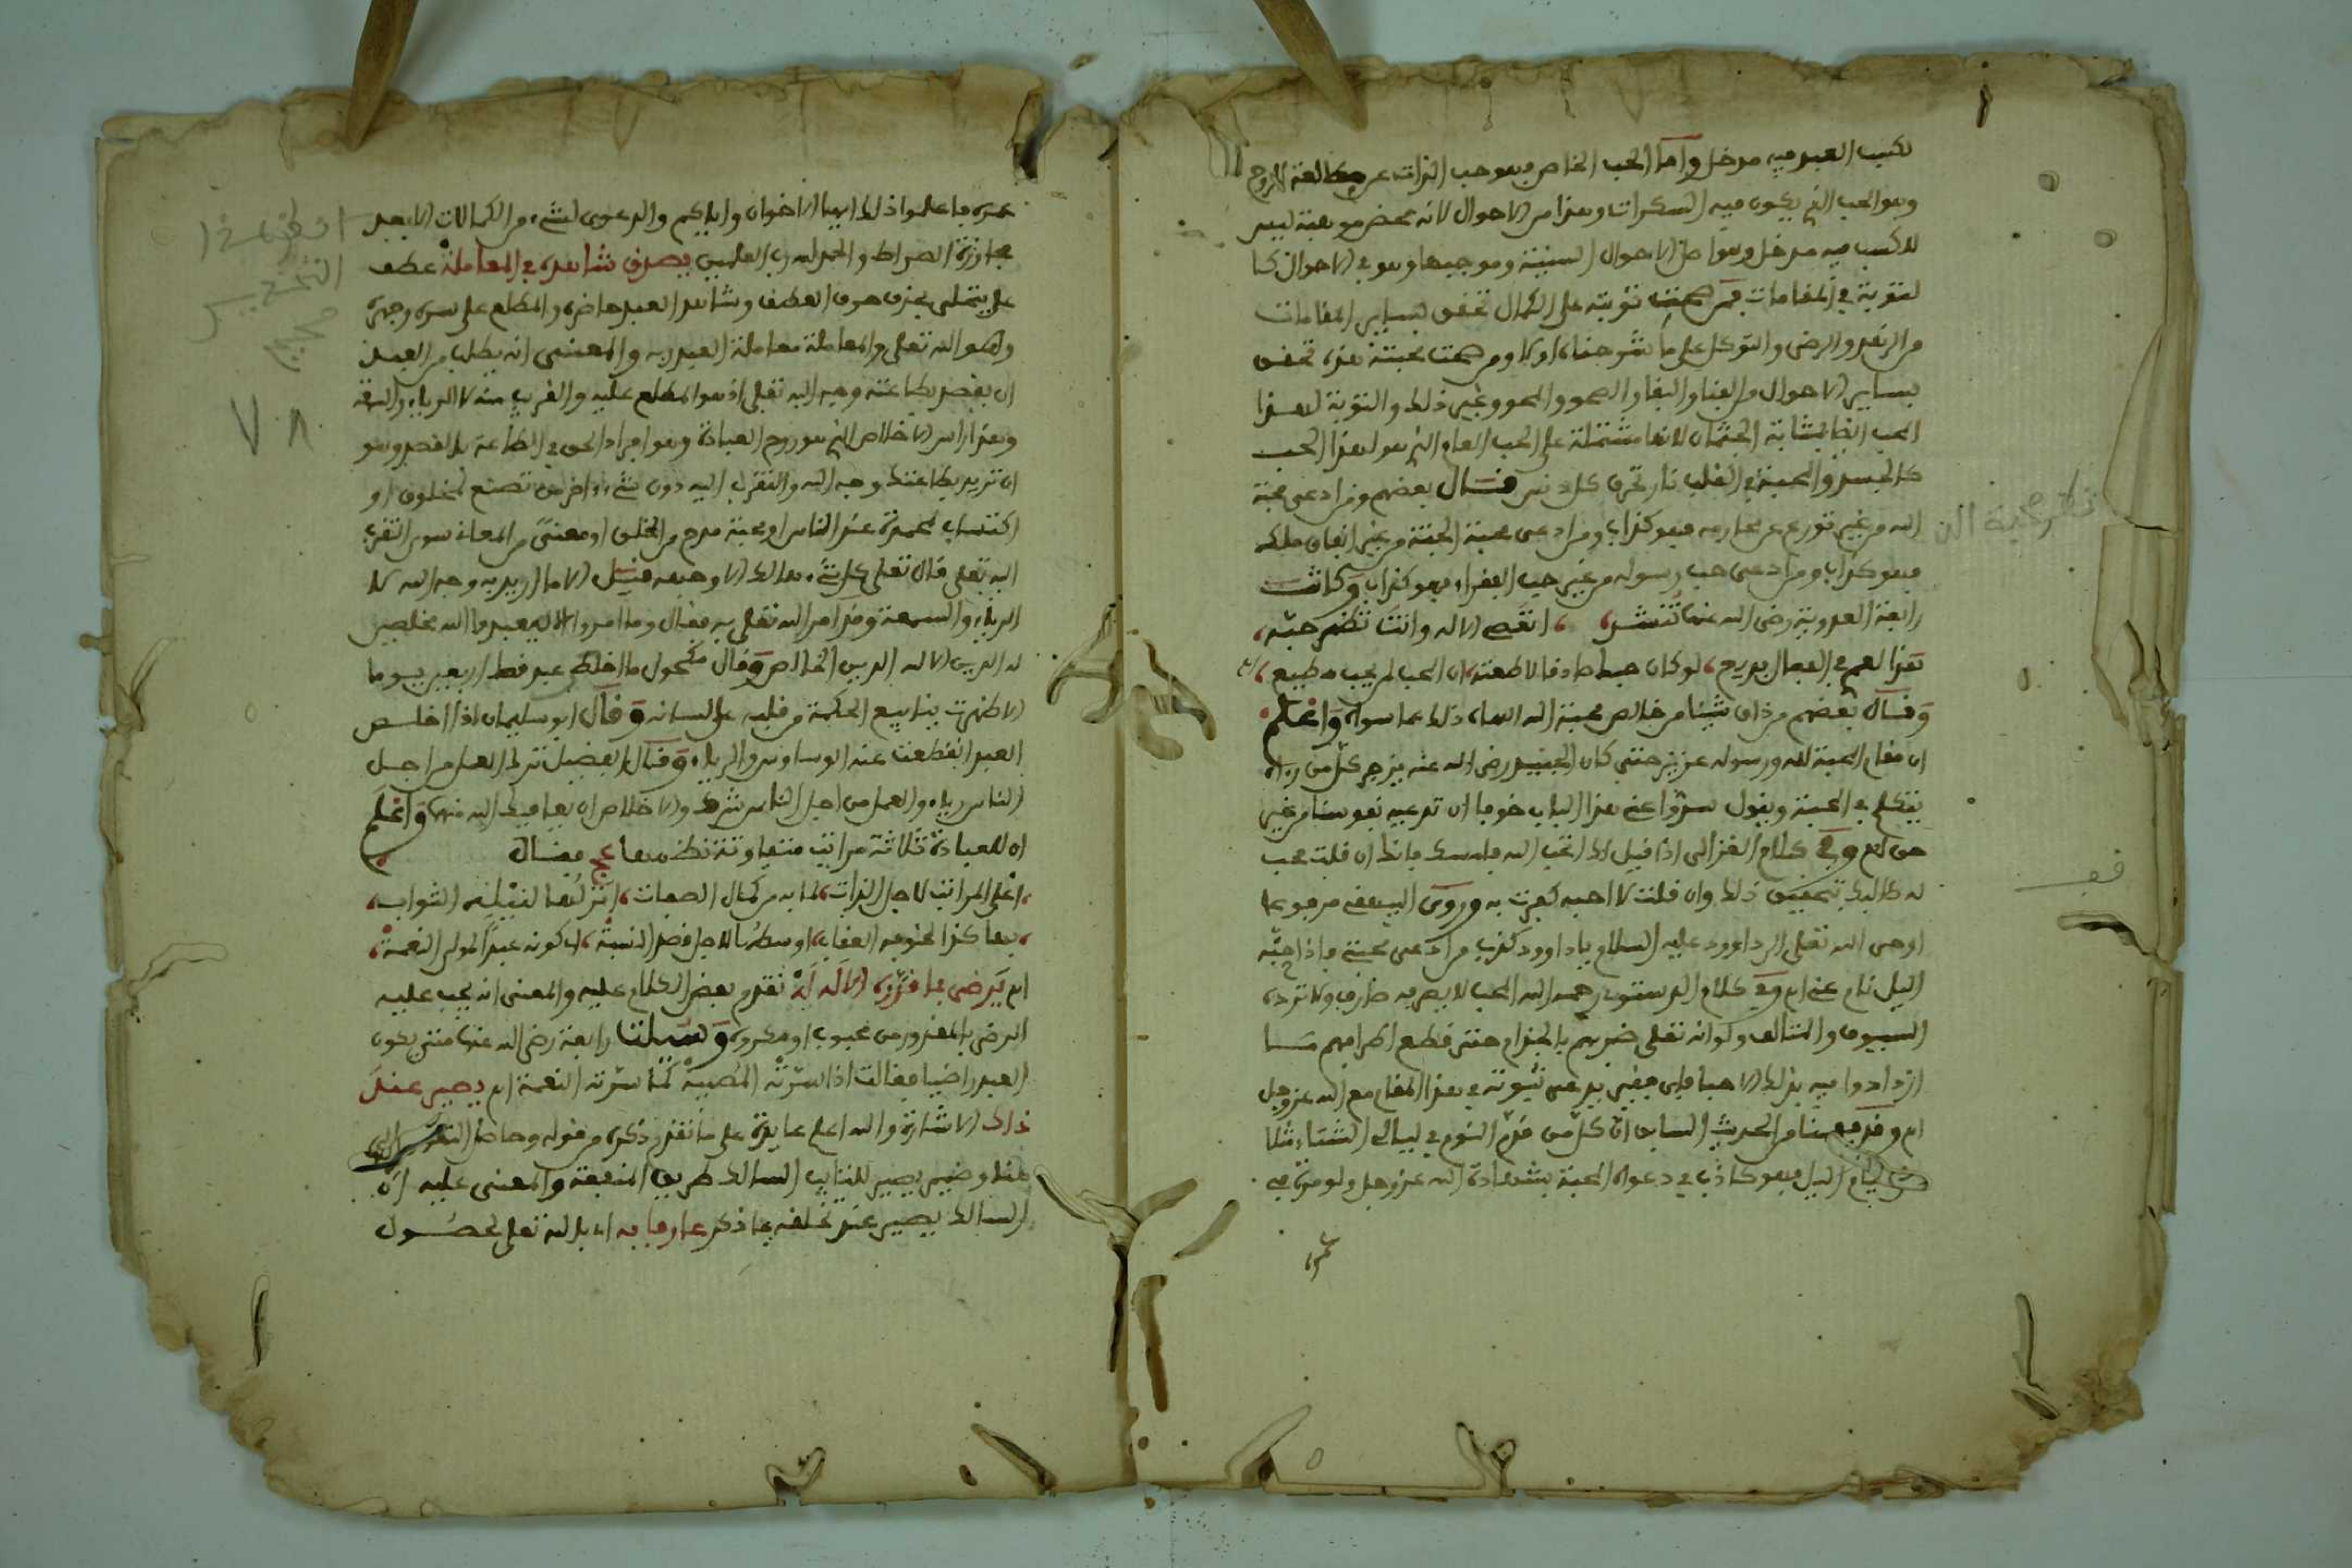 لكسب العبد فيه مدخل وأما الحب الخاص فهو حب الذات عن مطالعة الروح
وهو الحب الذي يكون فيه السكرات وهذا من الاحوال لانه محض موهبة ليس
للكسب فيه مدخل وهو اصل الاحوال السنية وموجبها وهو في الاحوال كا
لتوبة في المقامات فمن صحت توبته على الكمال تحقق بساير المقامات
من الزهد والرضى والتوكل على ما شرحناه اولا ومن صحت محبته هذه تحقق
بساير الاحوال من الفنا والبقا والصحو والمحو وغير ذلك والتوبة لهذا
الحب ايضا بمثابة الجثمان لانها مشتملة على الحب العام الذي هو لهذا الحب
كالجسد والمحبة في القلب نار تحرق كل دنس فقال بعضهم من ادعى محبة
الله من غير تورع عن محارمه فهو كذاب ومن ادعى محبة الجنة من غير انفاق ملكه
فهو كذاب ومن ادعى حب رسوله من غير حب الفقراء فهو كذاب وكانت
رابعة العدوية رضى الله عنها تنشد، تعصي الاله وانت تظهر حبه،
هذا لعمري في الفعال بديع، لو كان حبك صادقا لاطعته، ان المحب لمن يحب مطيع، اه
وقال بعضهم من ذاق شيئا من خالص محبة الله الهاه ذلك عما سواه واعلم
ان مقام المحبة لله ورسوله عزيز حتى كان الجنيد رضى الله عنه يزجر كل من رءاه
يتكلم في المحبة ويقول سدوا عني هذا الباب خوفا ان تدعيه نفوسنا من غير
حق اه وفي كلام الغزالى اذا قيل لك اتحب الله فامسك فانك ان قلت نحب
له طالبك بتحقيق ذلك وان قلت لا احبه كفرت به وروى البيهقي مرفوعا
اوحى الله تعلى الى داوود عليه السلام يا داوود كذب من ادعى محبتي فاذا جنه
اليل نام عني اه وفي كلام الدستوى رحمه الله المحب لا يصرفه صارف ولا ترده
السيوف والمتالف ولو انه تعلى ضربهم بالجذام حتى قطع اطرافهم مسا
ازدادوا فيه بذلك الا حبا فاى فقير يدعى ثبوته في هذا المقام مع الله عز وجل
اه وقد فهمنا من الحديث السابق ان كل من قدم النوم في ليالى الشتاء مثلا
على قيام اليل فهو كاذب في دعواه المحبة بشهادة الله عز وجل ولو مرة في
عمره
نظر محبة الله
قف
عمره فاعلموا ذلك ايها الاخوان واياكم والدعوى لشيء من الكمالات الا بعد
مجاوزة الصراط والحمد لله رب العلمين يصدق شاهده في المعاملة عطف
على يتحلى بحذف حرف العطف وشاهد العبد حاضره والمطلع على سره وجهره
وهو الله تعلى والمعاملة معاملة العبد ربه والمعنى انه يطلب من العبد
ان يقصد بطاعته وجه الله تعلى اذ هو المطلع عليه والقريب منه لا الرياء والسمعة
وهذا راس الاخلاص الذي هو روح العبادة وهو افراد الحق في الطاعة بالقصد وهو
ان تريد بطاعتك وجه الله والتقرب اليه دون شيء ءاخر من تصنع لمخلوق او
اكتساب محمدة عند الناس او محبة مدح من الخلق او معنى من المعاني سوى التقرب
اليه تعلى قال تعلى كل شيء هالك الا وجهه قيل الا ما اريد به وجه الله لا
الرياء والسمعة وقد امر الله تعلى به فقال وما امروا الا ليعبدوا الله مخلصين
له الدين الا لله الدين الخالص وقال مكحول ما اخلص عبد قط اربعين يوما
الا ظهرت ينابيع الحكمة من قلبه على لسانه وقال ابو سليمان اذا اخلص
العبد انقطعت عنه الوساوس والرياء وقال الفضيل ترك العمل من اجل
الناس رياء والعمل من اجل الناس شرك والاخلاص ان يعافيك الله منهما واعلم
ان للعبادة ثلاثة مراتب متفاوتة نظمها عج فقال
، اعلى المراتب لاجل الذات، لما به من كمال الصفات، انزلها لنيله الثواب،
، بها كذا لخوفه العقاب، اوسطها لاجل قصد النسبة، اي كونه عبدا لمولى النعمة،
اه يرضى بما قدره الاله له تقدم بعض الكلام عليه والمعنى انه يجب عليه
الرضى بالمقدور من محبوب او مكروه وسئلت رابعة رضى الله عنها متى يكون
العبد راضيا فقالت اذا سرته المصيبة كما سرته النعمة اه يصير عند
ذاك الاشارة والله اعلم عايدة على ما تقدم ذكره من قوله وحاصل التقوى الى
هنا وضمير يصير للتايب السالك طريق المنفعة والمعنى عليه ان
السالك يصير عند تخلقه بما ذكر عارفا به اى بالله تعلى لحصول
انظر هذا
التخـ
٧٨